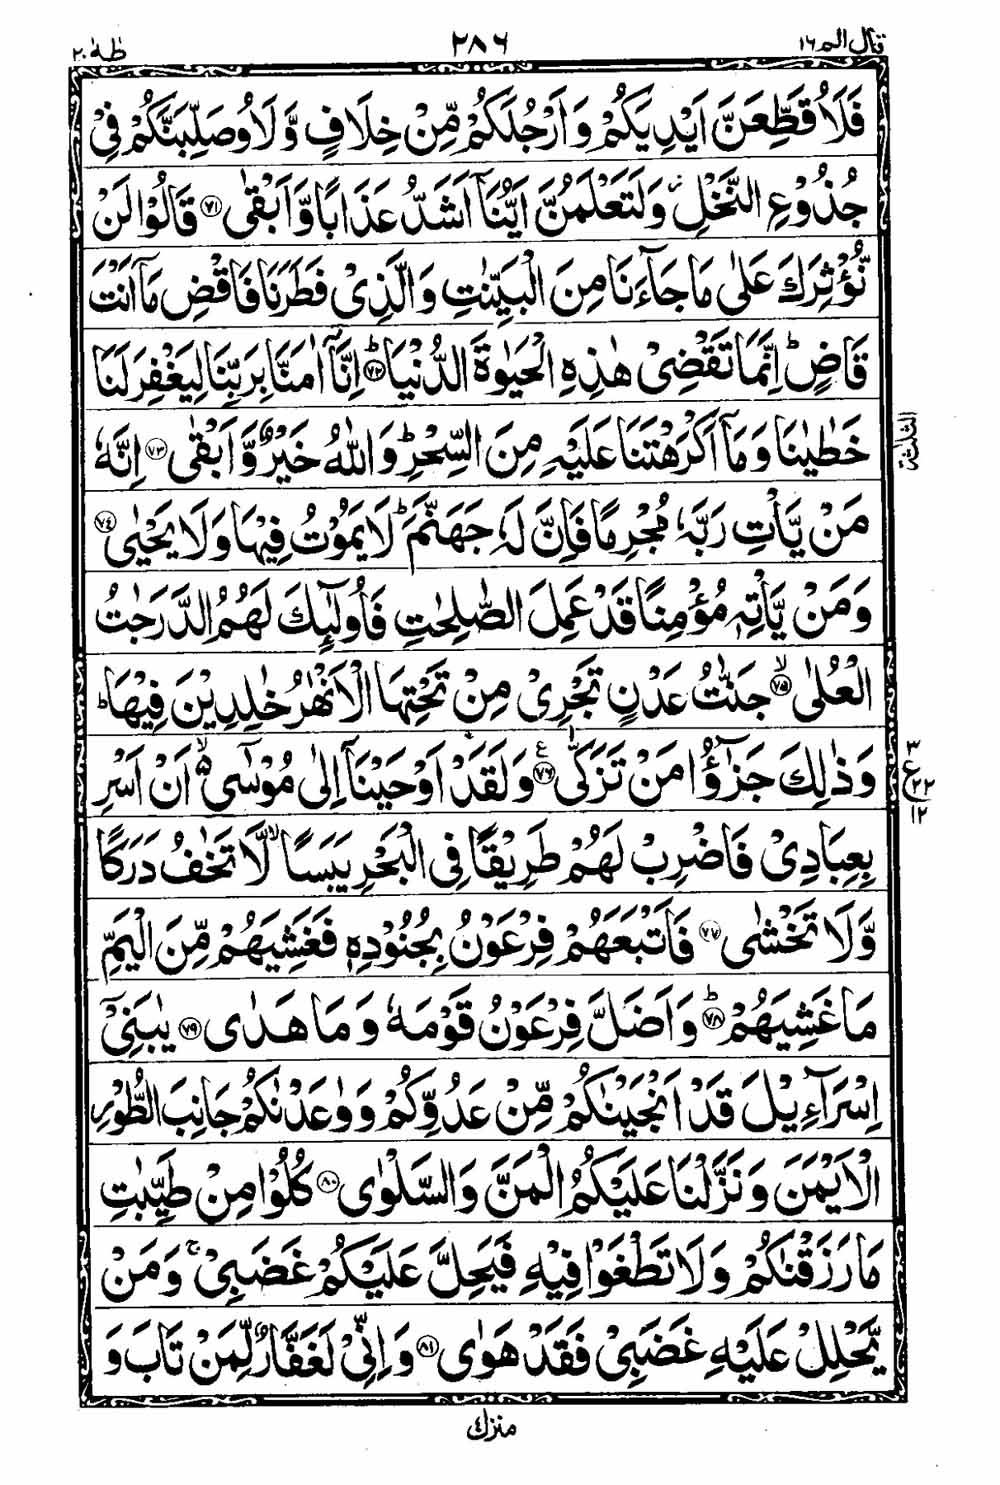 قال الم ١٦
٢٨٦
طٰهٰ ٢٠
فَلَاُقَطِّعَنَّ اَيْدِيَكُمْ وَاَرْجُلَكُمْ مِّنْ خِلَافٍ وَّلَاُوصَلِّبَنَّكُمْ فِيْ
جُذُوْعِ النَّخْلِ ۫ وَلَتَعْلَمُنَّ اَيُّنَاۤ اَشَدُّ عَذَابًا وَّاَبْقٰى ﴿٧١﴾ قَالُوْا لَنْ
نُّؤْثِرَكَ عَلٰى مَا جَآءَنَا مِنَ الْبَيِّنٰتِ وَالَّذِيْ فَطَرَنَا فَاقْضِ مَاۤ اَنْتَ
قَاضٍ ؕ اِنَّمَا تَقْضِيْ هٰذِهِ الْحَيٰوةَ الدُّنْيَا ؕ﴿٧٢﴾ اِنَّاۤ اٰمَنَّا بِرَبِّنَا لِيَغْفِرَ لَنَا
خَطٰيٰنَا وَمَاۤ اَكْرَهْتَنَا عَلَيْهِ مِنَ السِّحْرِ ؕ وَاللّٰهُ خَيْرٌ وَّاَبْقٰى ﴿٧٣﴾ اِنَّهٗ
مَنْ يَّاْتِ رَبَّهٗ مُجْرِمًا فَاِنَّ لَهٗ جَهَنَّمَ ؕ لَا يَمُوْتُ فِيْهَا وَلَا يَحْيٰى ﴿٧٤﴾
وَمَنْ يَّاْتِهٖ مُؤْمِنًا قَدْ عَمِلَ الصّٰلِحٰتِ فَاُولٰٓئِكَ لَهُمُ الدَّرَجٰتُ
الْعُلٰى ۙ﴿٧٥﴾ جَنّٰتُ عَدْنٍ تَجْرِيْ مِنْ تَحْتِهَا الْاَنْهٰرُ خٰلِدِيْنَ فِيْهَا ؕ
وَذٰلِكَ جَزٰٓؤُا مَنْ تَزَكّٰى ﴿٧٦﴾ ع وَلَقَدْ اَوْحَيْنَاۤ اِلٰى مُوْسٰۤى ۙ۬ اَنْ اَسْرِ
بِعِبَادِيْ فَاضْرِبْ لَهُمْ طَرِيْقًا فِي الْبَحْرِ يَبَسًا ۙ لَّا تَخٰفُ دَرَكًا
وَّلَا تَخْشٰى ﴿٧٧﴾ فَاَتْبَعَهُمْ فِرْعَوْنُ بِجُنُوْدِهٖ فَغَشِيَهُمْ مِّنَ الْيَمِّ
مَا غَشِيَهُمْ ؕ﴿٧٨﴾ وَاَضَلَّ فِرْعَوْنُ قَوْمَهٗ وَمَا هَدٰى ﴿٧٩﴾ يٰبَنِيْۤ
اِسْرَآءِيْلَ قَدْ اَنْجَيْنٰكُمْ مِّنْ عَدُوِّكُمْ وَوٰعَدْنٰكُمْ جَانِبَ الطُّوْرِ
الْاَيْمَنَ وَنَزَّلْنَا عَلَيْكُمُ الْمَنَّ وَالسَّلْوٰى ﴿٨٠﴾ كُلُوْا مِنْ طَيِّبٰتِ
مَا رَزَقْنٰكُمْ وَلَا تَطْغَوْا فِيْهِ فَيَحِلَّ عَلَيْكُمْ غَضَبِيْ ۚ وَمَنْ
يَّحْلِلْ عَلَيْهِ غَضَبِيْ فَقَدْ هَوٰى ﴿٨١﴾ وَاِنِّيْ لَغَفَّارٌ لِّمَنْ تَابَ وَ
الثلثة
٣
ع ٢٢
١٢
منزل ٤